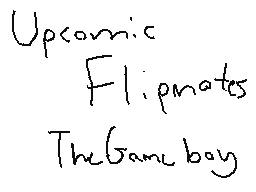 Upcomic
Flipmates
The Game boy